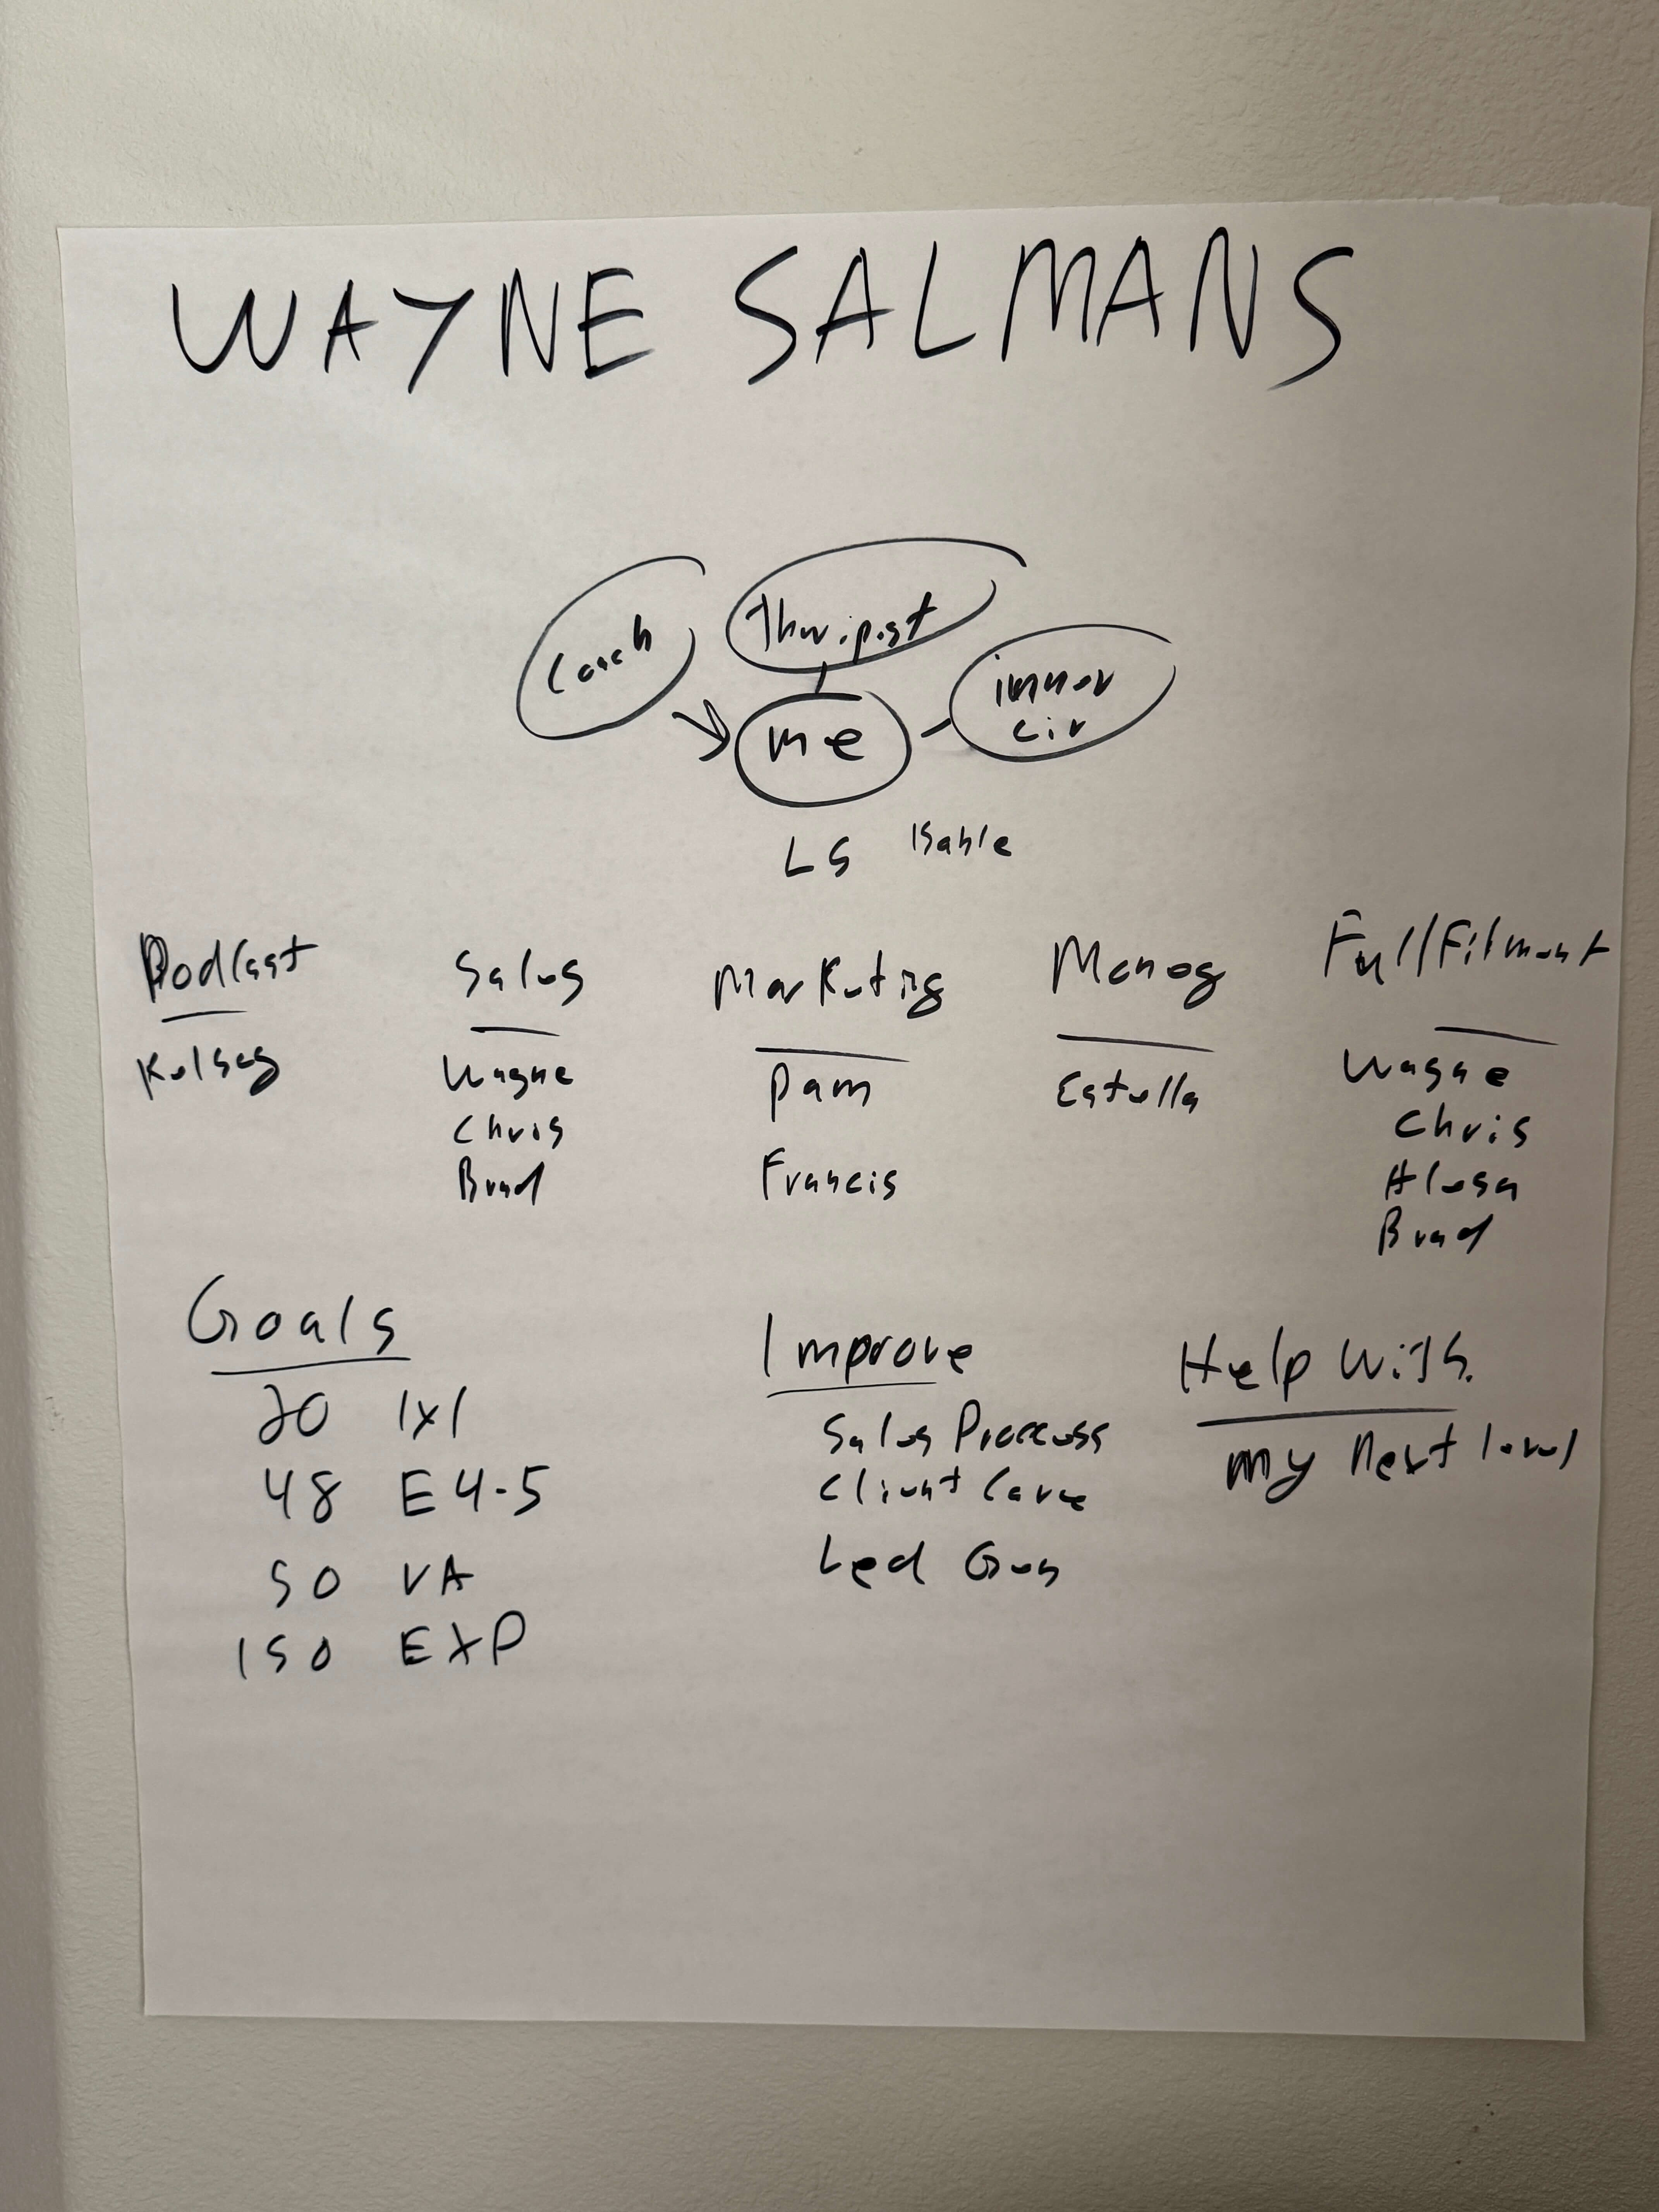 WAYNE SALMANS
Coach
Theripist
inner
cir
me
LS Isable
Podcast Sales Marketing Money Fullfilment
Kelsey Wayne Pam Estella Wayne
Chris Francis Chris
Brad Alesa
Brad
Goals Improve Help With
20 1x1 Sales Proccess my next level
48 E4-5 Client Care
50 VA Led Gen
150 EXP